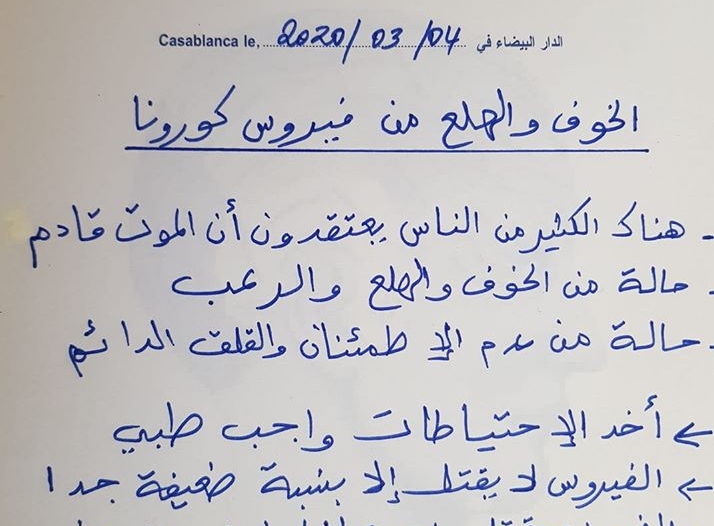 Casablanca le, 2020/03/04 الدار البيضاء في
الخوف والهلع من فيروس كورونا
- هناك الكثير من الناس يعتقدون أن الموت قادم
- حالة من الخوف والهلع والرعب
- حالة من عدم الإطمئنان والقلق الدائم
← أخد الإحتياطات واجب طبي
← الفيروس لا يقتل إلا بنسبة ضعيفة جدا